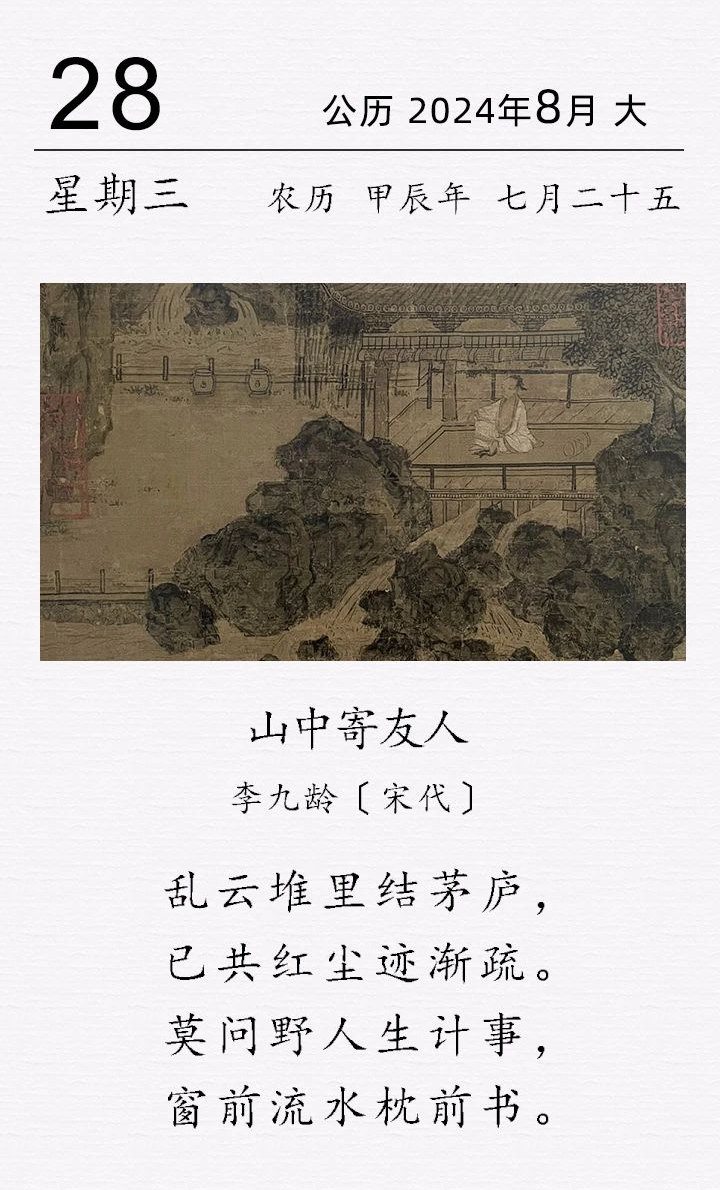 28
公历 2024年8月 大
星期三 农历 甲辰年 七月二十五
山中寄友人
李九龄〔宋代〕
乱云堆里结茅庐，
已共红尘迹渐疏。
莫问野人生计事，
窗前流水枕前书。